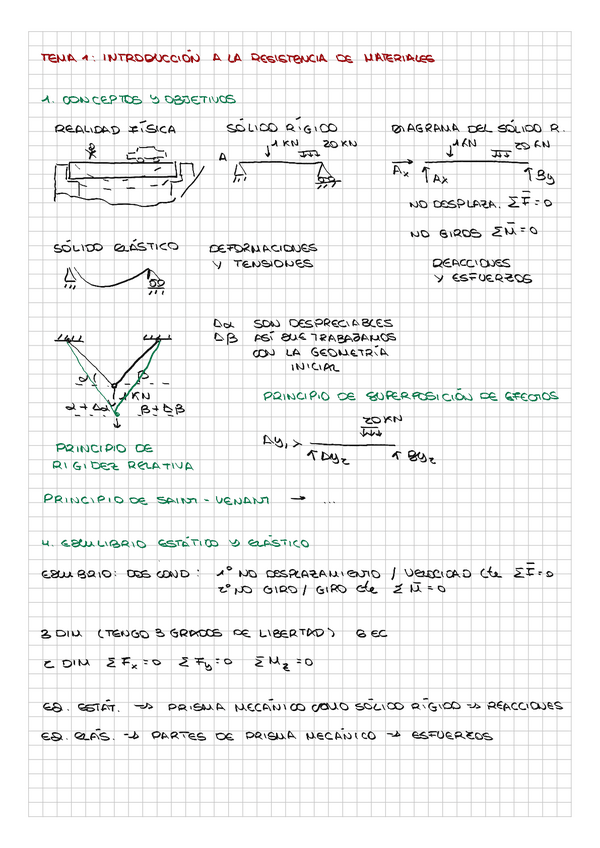 TEMA 1: INTRODUCCIÓN A LA RESISTENCIA DE MATERIALES
1. CONCEPTOS Y OBJETIVOS
REALIDAD FÍSICA
SÓLIDO RÍGIDO
DIAGRAMA DEL SÓLIDO R.
1 KN 20 KN
A
1 KN 20 KN
Ax Ax By
NO DESPLAZA. ΣF̄ = 0
NO GIROS ΣM̄ = 0
SÓLIDO ELÁSTICO
DEFORMACIONES
Y TENSIONES
REACCIONES
Y ESFUERZOS
Δα SON DESPRECIABLES
Δβ ASÍ QUE TRABAJAMOS
CON LA GEOMETRÍA
INICIAL
α β
1 KN
α + Δα β + Δβ
PRINCIPIO DE SUPERPOSICIÓN DE EFECTOS
20 KN
PRINCIPIO DE
RIGIDEZ RELATIVA
PRINCIPIO DE SAINT-VENANT → ...
4. EQUILIBRIO ESTÁTICO Y ELÁSTICO
1º NO DESPLAZAMIENTO / VELOCIDAD cte ΣF̄ = 0
2º NO GIRO / GIRO cte ΣM̄ = 0
3 DIM (TENGO 3 GRADOS DE LIBERTAD) 6 EC
2 DIM ΣFx = 0 ΣFy = 0 ΣMz = 0
EQ. ESTÁT. → PRISMA MECÁNICO COMO SÓLIDO RÍGIDO → REACCIONES
EQ. ELÁS. → PARTES DE PRISMA MECÁNICO → ESFUERZOS